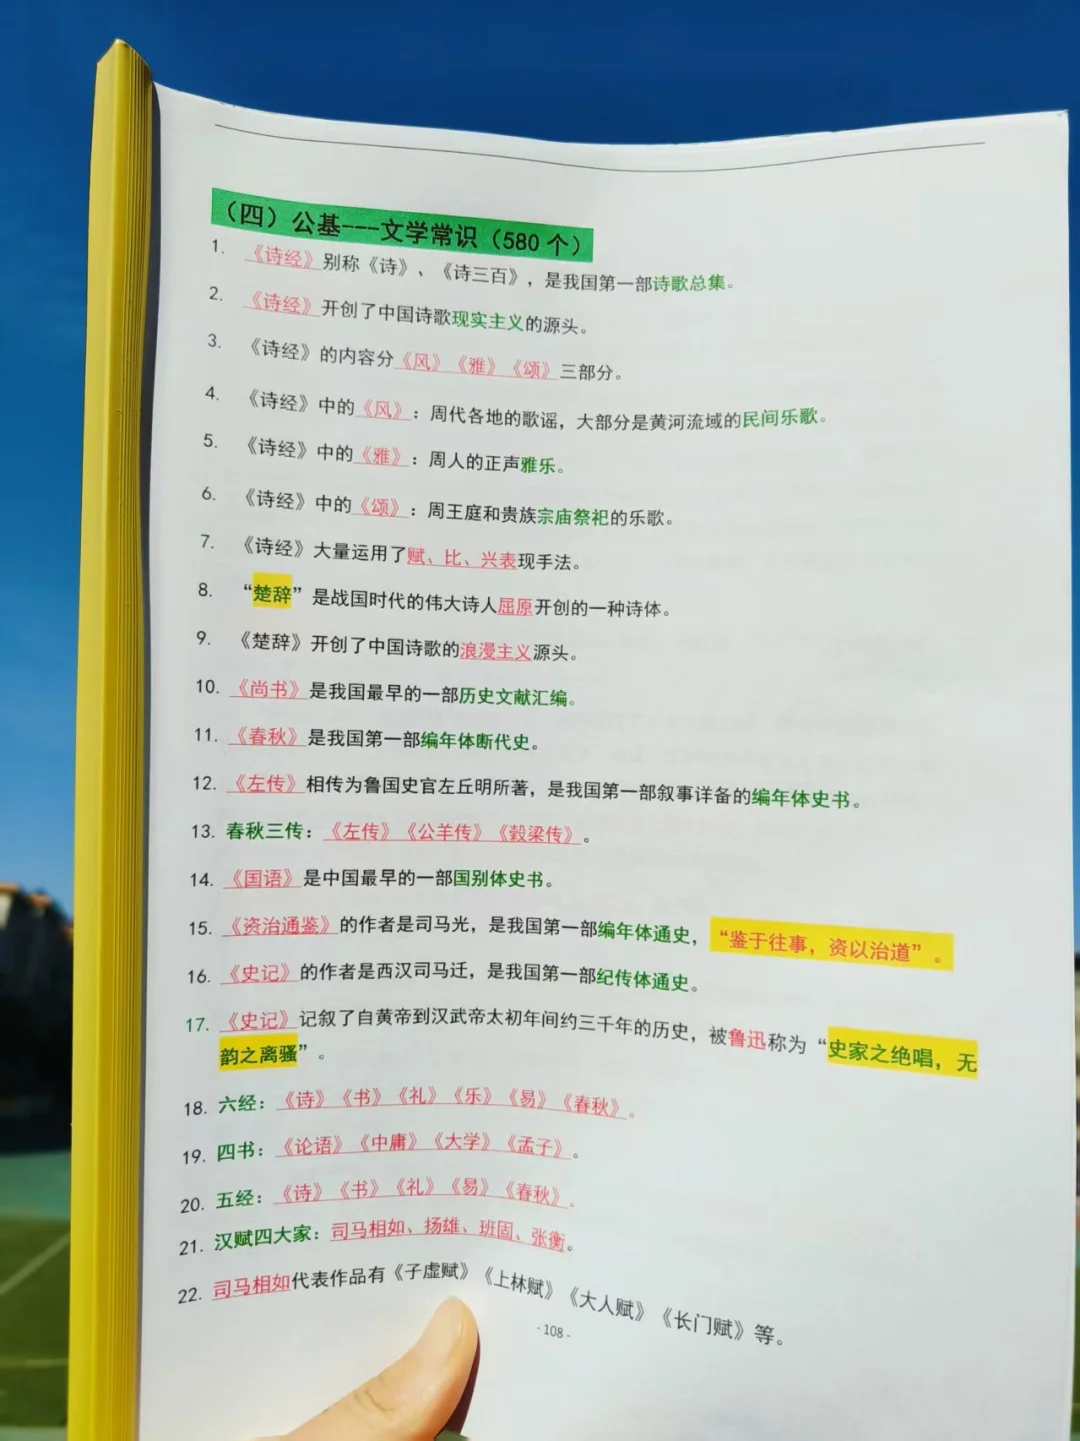 （四）公基---文学常识（580个）
1. 《诗经》别称《诗》、《诗三百》，是我国第一部诗歌总集。
2. 《诗经》开创了中国诗歌现实主义的源头。
3. 《诗经》的内容分《风》《雅》《颂》三部分。
4. 《诗经》中的《风》：周代各地的歌谣，大部分是黄河流域的民间乐歌。
5. 《诗经》中的《雅》：周人的正声雅乐。
6. 《诗经》中的《颂》：周王庭和贵族宗庙祭祀的乐歌。
7. 《诗经》大量运用了赋、比、兴表现手法。
8. “楚辞”是战国时代的伟大诗人屈原开创的一种诗体。
9. 《楚辞》开创了中国诗歌的浪漫主义源头。
10. 《尚书》是我国最早的一部历史文献汇编。
11. 《春秋》是我国第一部编年体断代史。
12. 《左传》相传为鲁国史官左丘明所著，是我国第一部叙事详备的编年体史书。
13. 春秋三传：《左传》《公羊传》《毂梁传》。
14. 《国语》是中国最早的一部国别体史书。
15. 《资治通鉴》的作者是司马光，是我国第一部编年体通史，“鉴于往事，资以治道”。
16. 《史记》的作者是西汉司马迁，是我国第一部纪传体通史。
17. 《史记》记叙了自黄帝到汉武帝太初年间约三千年的历史，被鲁迅称为“史家之绝唱，无
韵之离骚”。
18. 六经：《诗》《书》《礼》《乐》《易》《春秋》。
19. 四书：《论语》《中庸》《大学》《孟子》。
20. 五经：《诗》《书》《礼》《易》《春秋》。
21. 汉赋四大家：司马相如、扬雄、班固、张衡。
22. 司马相如代表作品有《子虚赋》《上林赋》《大人赋》《长门赋》等。
- 108 -